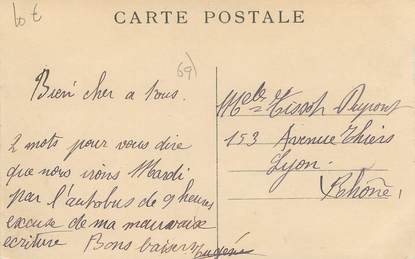 CARTE POSTALE
69)
Bien cher a tous.
2 mots pour vous dire
que nous irons Mardi
par l'autobus de 9 heures
excuse de ma mauvaise
ecriture Bons baisers Eugénie
Melle Dupont
153 Avenue Thiers
Lyon.
Rhône,